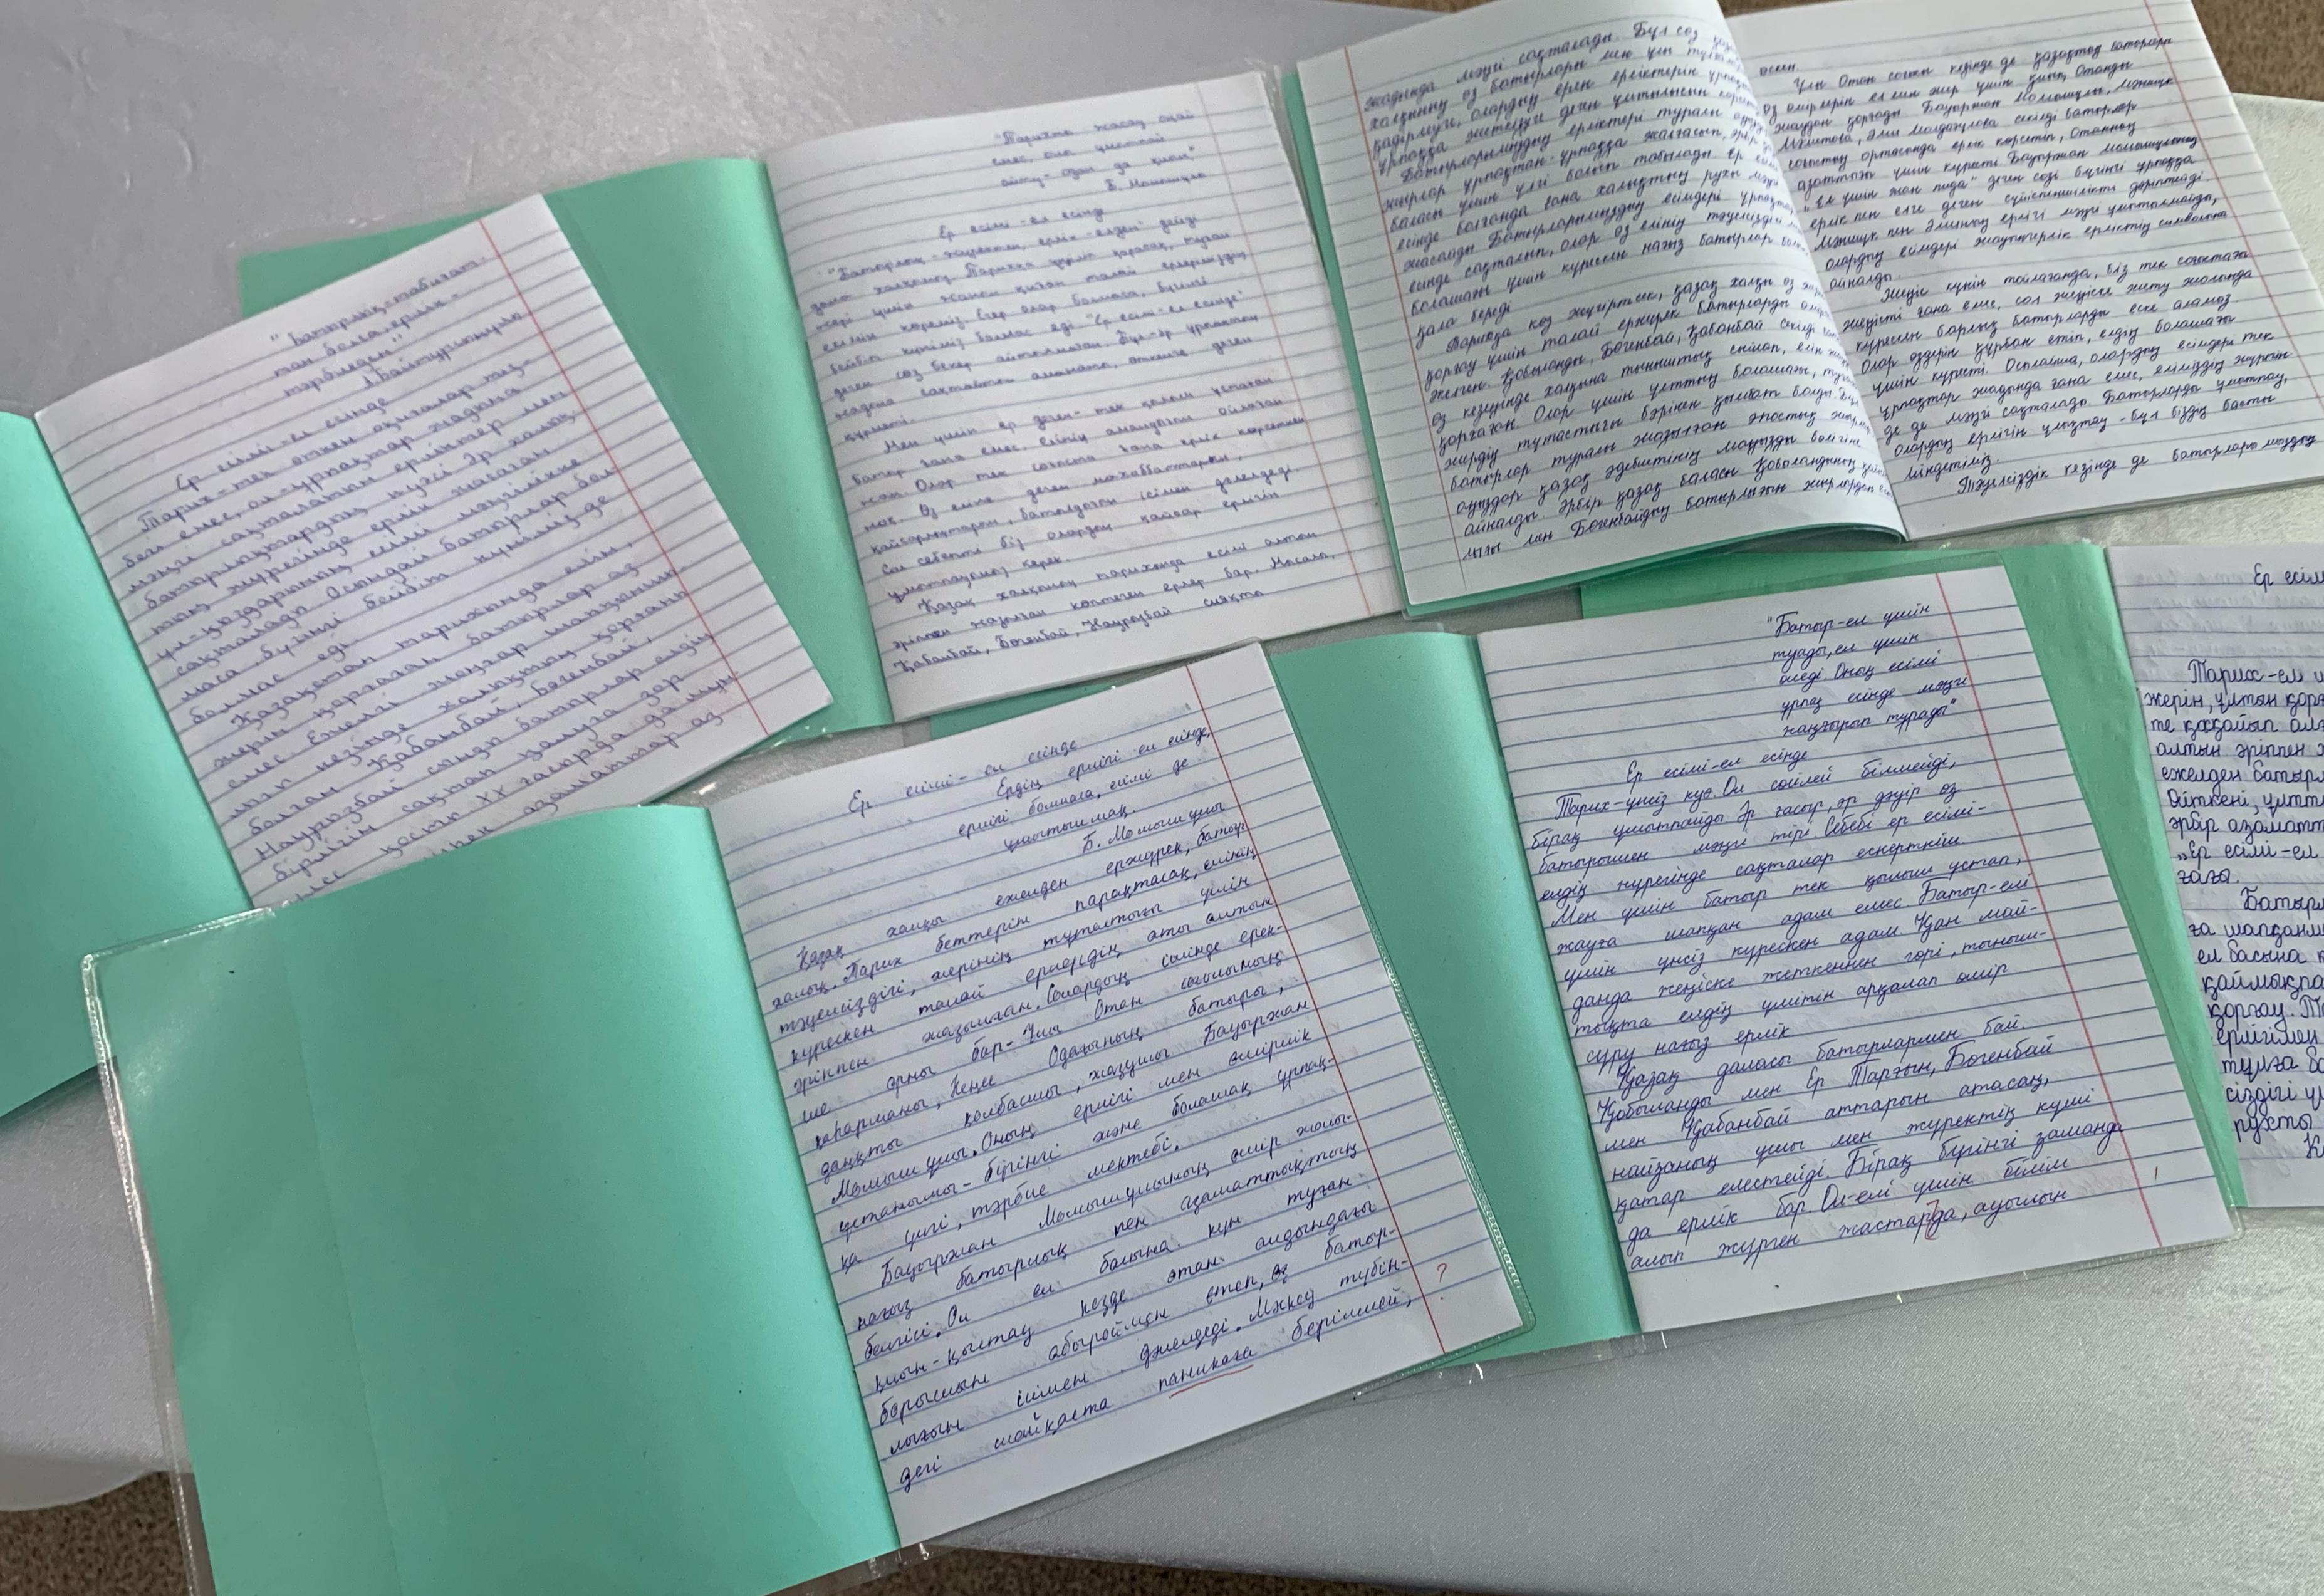 "Батырлық-табиғат-
тан болса, ерлік-
тәрбиеден"
А.Байтұрсынұлы
Ер есімі-ел есінде
Тарих-тек өткен оқиғалар тіз-
бегі емес, ол-ұрпақтар жадына
мәңгі сақталатын ерліктер мен
батырлықтардың күзісі. Әр халық
тың жүрегінде ерлік жасаған
ұл-қыздарының есімі мәңгілікке
сақталады. Осындай батырлар бол
маса, бүгінгі бейбіт күніміз де
болмас еді.
Қазақстан тарихында елін,
жерін қорғаған батырлар аз
емес. Ежелгі жоңғар шапқыншы-
лығы кезінде халықтың қорғаны
болған Қабанбай, Бөгенбай,
Наурызбай сынды батырлар елдің
бірлігін сақтап қалуға зор
үлес қосты. ХХ ғасырда да
азаматтар аз
"Тарихты жасау оңай
емес, оны ұмытпай
айту- одан да қиын"
Б. Момышұлы
Ер есімі - ел есінде
"Батырлық - жүректен, ерлік - елден" дейді
дана халқымыз. Тарихқа үңіліп қарасақ, туған
жері үшін жанын қиған талай ерлеріміздің
есімін көреміз. Егер олар болмаса, бүгінгі
бейбіт күніміз болмас еді. "Ер есімі-ел есінде"
деген сөз бекер айтылмаған. Бұл-әр ұрпақтың
жадына сақтайтын аманаты, өткенге деген
құрметі.
Мен үшін ер деген- тек қолын ұстаған
батыр ғана емес. Елінің амандығын ойлаған
жан. Олар тек соғыста ғана ерлік көрсеткен
жоқ. Өз еліне деген махаббаттарын,
қайсарлықтарын, батылдығын ісімен дәлелдеді.
Сол себепті біз олардың қайсар ерлігін
ұмытпауымыз керек.
Қазақ халқының тарихында есімі алтын
әріппен жазылған көптеген ерлер бар. Мысалы,
Қабанбай, Бөгенбай, Наурызбай сияқты
жадында мәңгі сақталады. Бұл сөз
халқының өз батырлары мен ұлы
қадірлеуі, олардың ерен ерліктерін
ұрпаққа жеткізуге деген ұмтылысын
Батырларымыздың ерліктері туралы
жырлар ұрпақтан-ұрпаққа жалғасып,
баласы үшін үлгі болып табылады. Ер
есінде болғанда ғана халықтың рухы
жасайды. Батырларымыздың есімдері
есінде сақталып, олар өз елінің тәуелсіздігі
болашағы үшін күрескен нағыз батырлар
қала береді
Тарихқа көз жүгіртсек, қазақ халқы өз
қорғау үшін талай ержүрек батырларды
жеген. Қобыланды, Бөгенбай, Қабанбай секілді
өз кезеңінде халқына тыныштық сыйлап, елін
қорғаған. Олар үшін ұлттың болашағы,
жердің тұтастығы бәрінен қымбат болды.
батырлар туралы жазылған эпостық
аңыздар қазақ әдебиетінің маңызды бөлігіне
айналды. Әрбір қазақ баласы Қобыландының
лығы мен Бөгенбайдың батырлығын жырлардан
өскен.
Ұлы Отан соғысы кезінде де қазақтың батырлары
өз өмірлерін ел мен жер үшін қиып, Отанды
жаудан қорғады. Бауыржан Момышұлы, Мәншүк
Мәметова, Әлия Молдағұлова секілді батырлар
соғыстың ортасында ерлік көрсетіп, Отанның
азаттығы үшін күресті. Бауыржан Момышұлының
"Ел үшін жан пида" деген сөзі бүгінгі ұрпаққа
ерлік пен елге деген сүйіспеншілікті дәріптейді.
Мәншүк пен Әлияның ерлігі мәңгі ұмытылмайды,
олардың есімдері жауынгерлік ерліктің символына
айналды.
Жеңіс күнін тойлағанда, біз тек соғыстағы
жеңісті ғана емес, сол жеңіске жету жолында
күрескен барлық батырларды еске аламыз
Олар өздерін құрбан етіп, елдің болашағы
үшін күресті. Осылайша, олардың есімдері тек
ұрпақтар жадында ғана емес, еліміздің жүрегін
де де мәңгі сақталады. Батырларды ұмытпау,
олардың ерлігін ұлықтау - бұл біздің басты
міндетіміз
Тәуелсіздік кезінде де батырларымыздың
Ер есімі- ел есінде
Ердің ерлігі ел есінде,
ерлігі болмаса, есімі де
ұмытылмақ.
Б. Момышұлы
Қазақ халқы ежелден ержүрек, батыр
халық. Тарих беттерін парақтасақ, елінің
тәуелсіздігі, жерінің тұтастығы үшін
күрескен талай ерлердің аты алтын
әріппен жазылған. Солардың ішінде ерек-
ше орны бар- Ұлы Отан соғысының
қаһарманы, Кеңес Одағының батыры,
даңқты қолбасшы, жазушы Бауыржан
Момышұлы. Оның ерлігі мен өмірлік
ұстанымы- бүгінгі және болашақ ұрпақ-
қа үлгі, тәрбие мектебі.
Бауыржан Момышұлының өмір жолы-
нағыз батырлық пен азаматтықтың
белгісі. Ол ел басына күн туған
қиын-қыстау кезде отан алдындағы
борышын абыроймен өтеп, өз батыр-
лығын ісімен дәлелдеді. Мәскеу түбін-
дегі шайқаста паникаға берілмей,
?
"Батыр-ел үшін
туады, ел үшін
өледі Оның есімі
ұрпақ есінде мәңгі
жаңғырып тұрады"
Ер есімі-ел есінде
Тарих-үнсіз куә. Ол сөйлей білмейді,
бірақ ұмытпайды Әр ғасыр, әр дәуір өз
батырымен мәңгі тірі Себебі ер есімі-
елдің жүрегінде сақталар ескерткіш
Мен үшін батыр тек қылыш ұстап,
жауға шапқан адам емес. Батыр-елі
үшін үнсіз күрескен адам Қан май-
данда жеңіске жеткеннен гөрі, тыныш-
тықта елдің үмітін арқалап өмір
сүру нағыз ерлік
Қазақ даласы батырлармен бай.
Қобыланды мен Ер Тарғын, Бөгенбай
мен Қабанбай аттарын атасақ,
найзаның ұшы мен жүректің күші
қатар елестейді. Бірақ бүгінгі заманда
да ерлік бар. Ол-елі үшін білім
алып жүрген жастарда, ауылын
!
Ер есім
Тарих-ел
жерін, ұлтын
те қасқайып
алтын әріппен
ежелден
Өйткені,
әрбір
„Ер есімі-ел
ға шапқан
ел басына
қорғау.
ерлігімен
тұлға
сіздігі
рухты